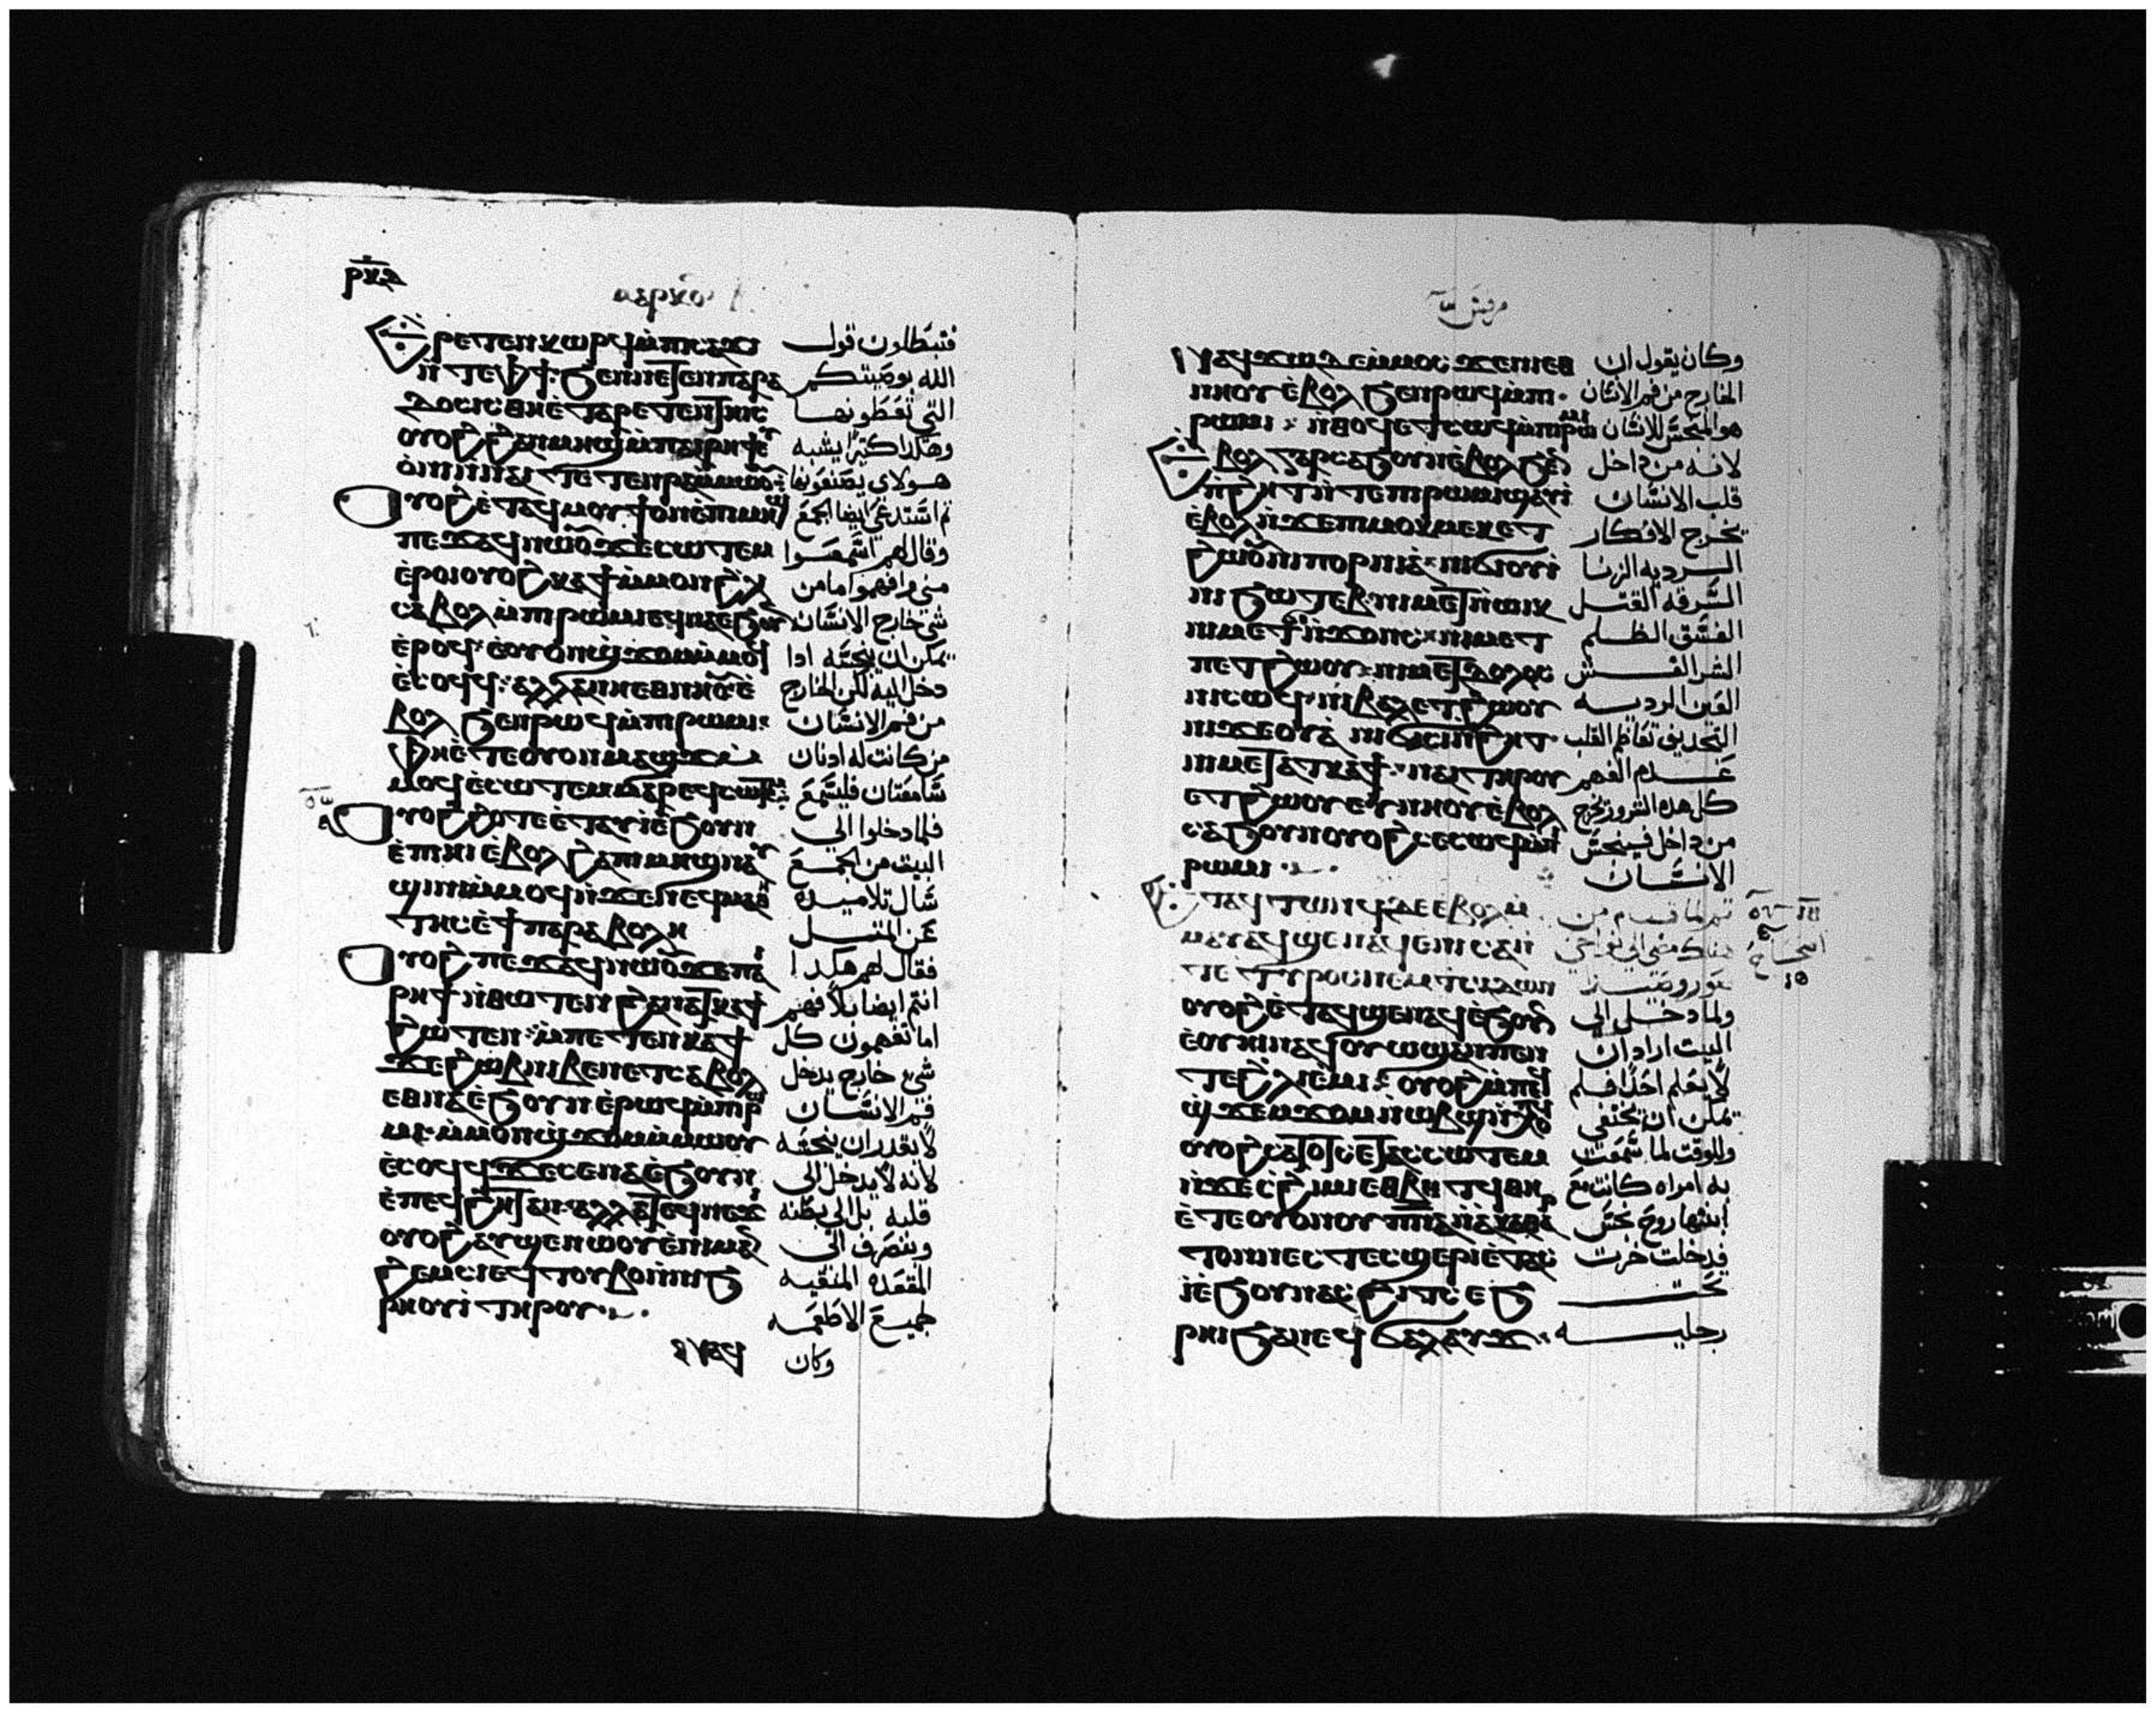 ⲣⲉⲧⲉⲛⲕⲱⲣϥ ⲙ̀ⲡⲓⲥⲁϫⲓ
ⲛ̀ⲧⲉⲫϯ ϧⲉⲛⲛⲉⲧⲉⲛⲡⲁⲣⲁ
ⲇⲟⲥⲓⲥ ⲑⲏⲉ̀ⲧⲁⲣⲉⲧⲉⲛⲧⲏⲓⲥ
ⲟⲩⲟϩ ϩⲁⲛⲙⲏϣ ⲙ̀ⲡⲁⲓⲣⲏϯ
ⲟⲩⲟϩ ⲉ̀ⲧⲁϥⲙⲟⲩϯ ⲟⲛ ⲉ̀ⲡⲓⲙⲏϣ
ⲡⲉϫⲁϥ ⲛⲱⲟⲩ ϫⲉ ⲥⲱⲧⲉⲙ
ⲉ̀ⲣⲟⲓ ⲟⲩⲟϩ ⲕⲁϯ ⲙ̀ⲙⲟⲛ ϩⲗⲓ
ⲥⲁⲃⲟⲗ ⲙ̀ⲡⲓⲣⲱⲙⲓ ⲉϥⲛⲁ ⲉϧⲟⲩⲛ
ⲉ̀ⲣⲟϥ ⲉ̀ⲟⲩⲟⲛϣϫⲟⲙ ⲙ̀ⲙⲟϥ
ⲉ̀ⲥⲟϥϥ ⲁⲗⲗⲁ ⲛⲏⲉⲑⲛⲏⲟⲩ ⲉ̀
ⲃⲟⲗ ϧⲉⲛⲣⲱϥ ⲙ̀ⲡⲓⲣⲱⲙⲓ
ⲫⲏⲉ̀ⲧⲉⲟⲩⲟⲛ ⲙⲁϣϫ ⲙ̀
ⲙⲟϥ ⲉ̀ⲥⲱⲧⲉⲙ ⲙⲁⲣⲉϥⲥⲱⲧⲉⲙ
ⲟⲩⲟϩ ϩⲟⲧⲉ ⲉ̀ⲧⲁⲩⲓ̀ ⲉ̀ϧⲟⲩⲛ
ⲉ̀ⲡⲏⲓ ⲉ̀ⲃⲟⲗ ϩⲁⲡⲓⲙⲏϣ ⲛⲁⲩ
ϣⲓⲛⲓ ⲙ̀ⲙⲟϥ ⲛ̀ϫⲉⲛⲉϥⲙⲁⲑⲏ
ⲧⲏⲥ ⲉ̀ϯⲡⲁⲣⲁⲃⲟⲗⲏ
ⲟⲩⲟϩ ⲡⲉϫⲁϥ ⲛⲱⲟⲩ ϫⲉ ⲡⲁⲓ
ⲣⲏϯ ⲛ̀ⲑⲱⲧⲉⲛ ϩⲁⲛⲁⲧⲕⲁϯ
ϩⲱⲧⲉⲛ ⲙ̀ⲡⲉⲧⲉⲛⲕⲁϯ
ϫⲉ ϩⲱⲃ ⲛⲓⲃⲉⲛ ⲉⲧⲥⲁⲃⲟⲗ
ⲉⲑⲛⲁ ⲉ̀ϧⲟⲩⲛ ⲉ̀ⲣⲱϥ ⲙ̀ⲡⲓⲣⲱ
ⲙⲓ ⲙ̀ⲙⲟⲛϣϫⲟⲙ ⲙ̀ⲙⲱⲟⲩ
ⲉ̀ⲥⲟϥϥ ϫⲉ ⲥⲉⲛⲁ ⲉ̀ϧⲟⲩⲛ
ⲉ̀ⲡⲉϥϩⲏⲧ ⲁⲛ ⲁⲗⲗⲁ ⲧⲉϥⲛⲉϫⲓ
ⲟⲩⲟϩ ⲁⲩϣⲉⲛⲱⲟⲩ ⲉ̀ⲡⲓⲙⲁⲛ̀
ϩⲉⲙⲥⲓ ⲉϥⲧⲟⲩⲃⲟ ⲛ̀ⲛⲓϧ
ⲣⲏⲟⲩⲓ̀ ⲧⲏⲣⲟⲩ
فتبطلون قول
الله بوصيتكم
التي تعطونها
وهكذا كثيرا يشبه
هولاي يصنعونها
ثم استدعي ايضا الجمع
وقال لهم اسمعوا
مني وافهموا ما من
شي خارج الانسان
يمكن ان ينجسه اذا
دخل اليه لكن الخارج
من فم الانسان
من كانت له اذنان
سامعتان فليسمع
فلما دخلوا الي
البيت من الجمع
سال تلاميذه
عن المثل
فقال لهم هكذا
انتم ايضا بلا فهم
اما تفهمون كل
شي خارج يدخل
فم الانسان
لا يقدر ان ينجسه
لانه لا يدخل الي
قلبه بل الي بطنه
وينصرف الي
المقعده المنقيه
جميع الاطعمه
وكان
مرقس
ⲛⲁϥϫⲱ ⲇⲉ ⲙ̀ⲙⲟⲥ ϫⲉ ⲡⲉⲑ
ⲛⲏⲟⲩ ⲉ̀ⲃⲟⲗ ϧⲉⲛⲣⲱϥ ⲙ̀ⲡⲓ
ⲣⲱⲙⲓ ⲛ̀ⲑⲟϥ ⲉⲧⲥⲱϥ ⲙ̀ⲡⲓⲣⲱⲙⲓ
ⲃⲟⲗ ⲅⲁⲣ ⲥⲁϧⲟⲩⲛ ⲉ̀ⲃⲟⲗ ϧⲉⲛ
ⲡ̀ϩⲏⲧ ⲛ̀ⲧⲉⲡⲓⲣⲱⲙⲓ ϣⲁⲩⲓ̀
ⲉ̀ⲃⲟⲗ ⲛ̀ϫⲉⲛⲓⲙⲟⲕⲙⲉⲕ ⲉⲧ
ϩⲱⲟⲩ ⲛⲓⲡⲟⲣⲛⲓⲁ ⲛⲓϭⲓⲟⲩⲓ̀
ⲛⲓϧⲱⲧⲉⲃ ⲛⲓⲙⲉⲧⲛⲱⲓⲕ
ⲛⲓⲙⲉⲧϭⲓⲛ̀ϫⲟⲛⲥ ⲛⲓⲙⲉⲧ
ⲡⲉⲧϩⲱⲟⲩ ⲛⲓⲙⲉⲧⲇⲟⲗⲟⲥ
ⲛⲓⲥⲱϥ ⲛⲓⲃⲁⲗ ⲉⲧϩⲱⲟⲩ
ⲛⲓϫⲉⲟⲩⲁ̀ ⲛⲓϭⲓⲥⲓⲛ̀ϩⲏⲧ
ⲛⲓⲙⲉⲧⲁⲧⲕⲁϯ ⲛⲁⲓ ⲧⲏⲣⲟⲩ
ⲉⲧϩⲱⲟⲩ ⲉⲩⲛⲏⲟⲩ ⲉ̀ⲃⲟⲗ
ⲥⲁϧⲟⲩⲛ ⲟⲩⲟϩ ⲥⲉⲥⲱϥ ⲙ̀ⲡⲓ
ⲣⲱⲙⲓ
ⲧⲁϥⲧⲱⲛϥ ⲇⲉ ⲉ̀ⲃⲟⲗ ⲙ̀
ⲙⲁⲩ ⲁϥϣⲉⲛⲁϥ ⲉ̀ⲛⲓⲥⲁ ⲛ̀
ⲧⲉ ⲧⲩⲣⲟⲥ ⲛⲉⲙ ⲧⲥⲓⲇⲱⲛ
ⲟⲩⲟϩ ⲉ̀ⲧⲁϥϣⲉⲛⲁϥ ⲉ̀ϧⲟⲩⲛ
ⲉ̀ⲟⲩⲏⲓ ⲛⲁϥⲟⲩⲱϣ ⲁⲛ ⲡⲉ ⲛ̀
ⲧⲉϩⲗⲓ ⲉ̀ⲙⲓ ⲟⲩⲟϩ ⲙ̀ⲡⲉϥ
ϣϫⲉⲙϫⲟⲙ ⲛ̀ⲱⲃϣ ⲉ̀ⲣⲱⲟⲩ
ⲟⲩⲟϩ ⲥⲁⲧⲟⲧⲥ ⲉⲧⲁⲥⲥⲱⲧⲉⲙ
ⲛ̀ϫⲉⲟⲩⲥϩⲓⲙⲓ ⲉⲑⲃⲏⲧϥ ⲑⲏ
ⲉ̀ⲧⲉⲟⲩⲟⲛ ⲟⲩⲡⲛⲁ ⲛ̀ⲁⲕⲁⲑⲁⲣ
ⲧⲟⲛ ⲛⲉⲙ ⲧⲉⲥϣⲉⲣⲓ ⲉ̀ⲧⲁⲥ
ⲓ̀ ⲉ̀ϧⲟⲩⲛ ⲁⲥϩⲓⲧⲥ ⲉϧ
ⲣⲏⲓ ϧⲁⲛⲉϥϭⲁⲗⲁⲩϫ
وكان يقول ان
الخارج من فم الانسان
هو المنجس للانسان
لانه من داخل
قلب الانسان
يخرج الافكار
الرديه الزنا
السرقه القتل
الفسق الظلم
الشر الغش
العين الرديه
التجديف تعاظم القلب
عدم الفهم
كل هذه الشرور تخرج
من داخل فينجس
الانسان
ثم لما قام من
هناك مضي الي نواحي
صور وصيدا
ولما دخل الي
البيت اراد ان
لا يعلم احدا فلم
يمكن ان يختفي
وللوقت لما سمعت
به امراه كانت مع
ابنتها روح نجس
فدخلت خرت
تحت
رجليه